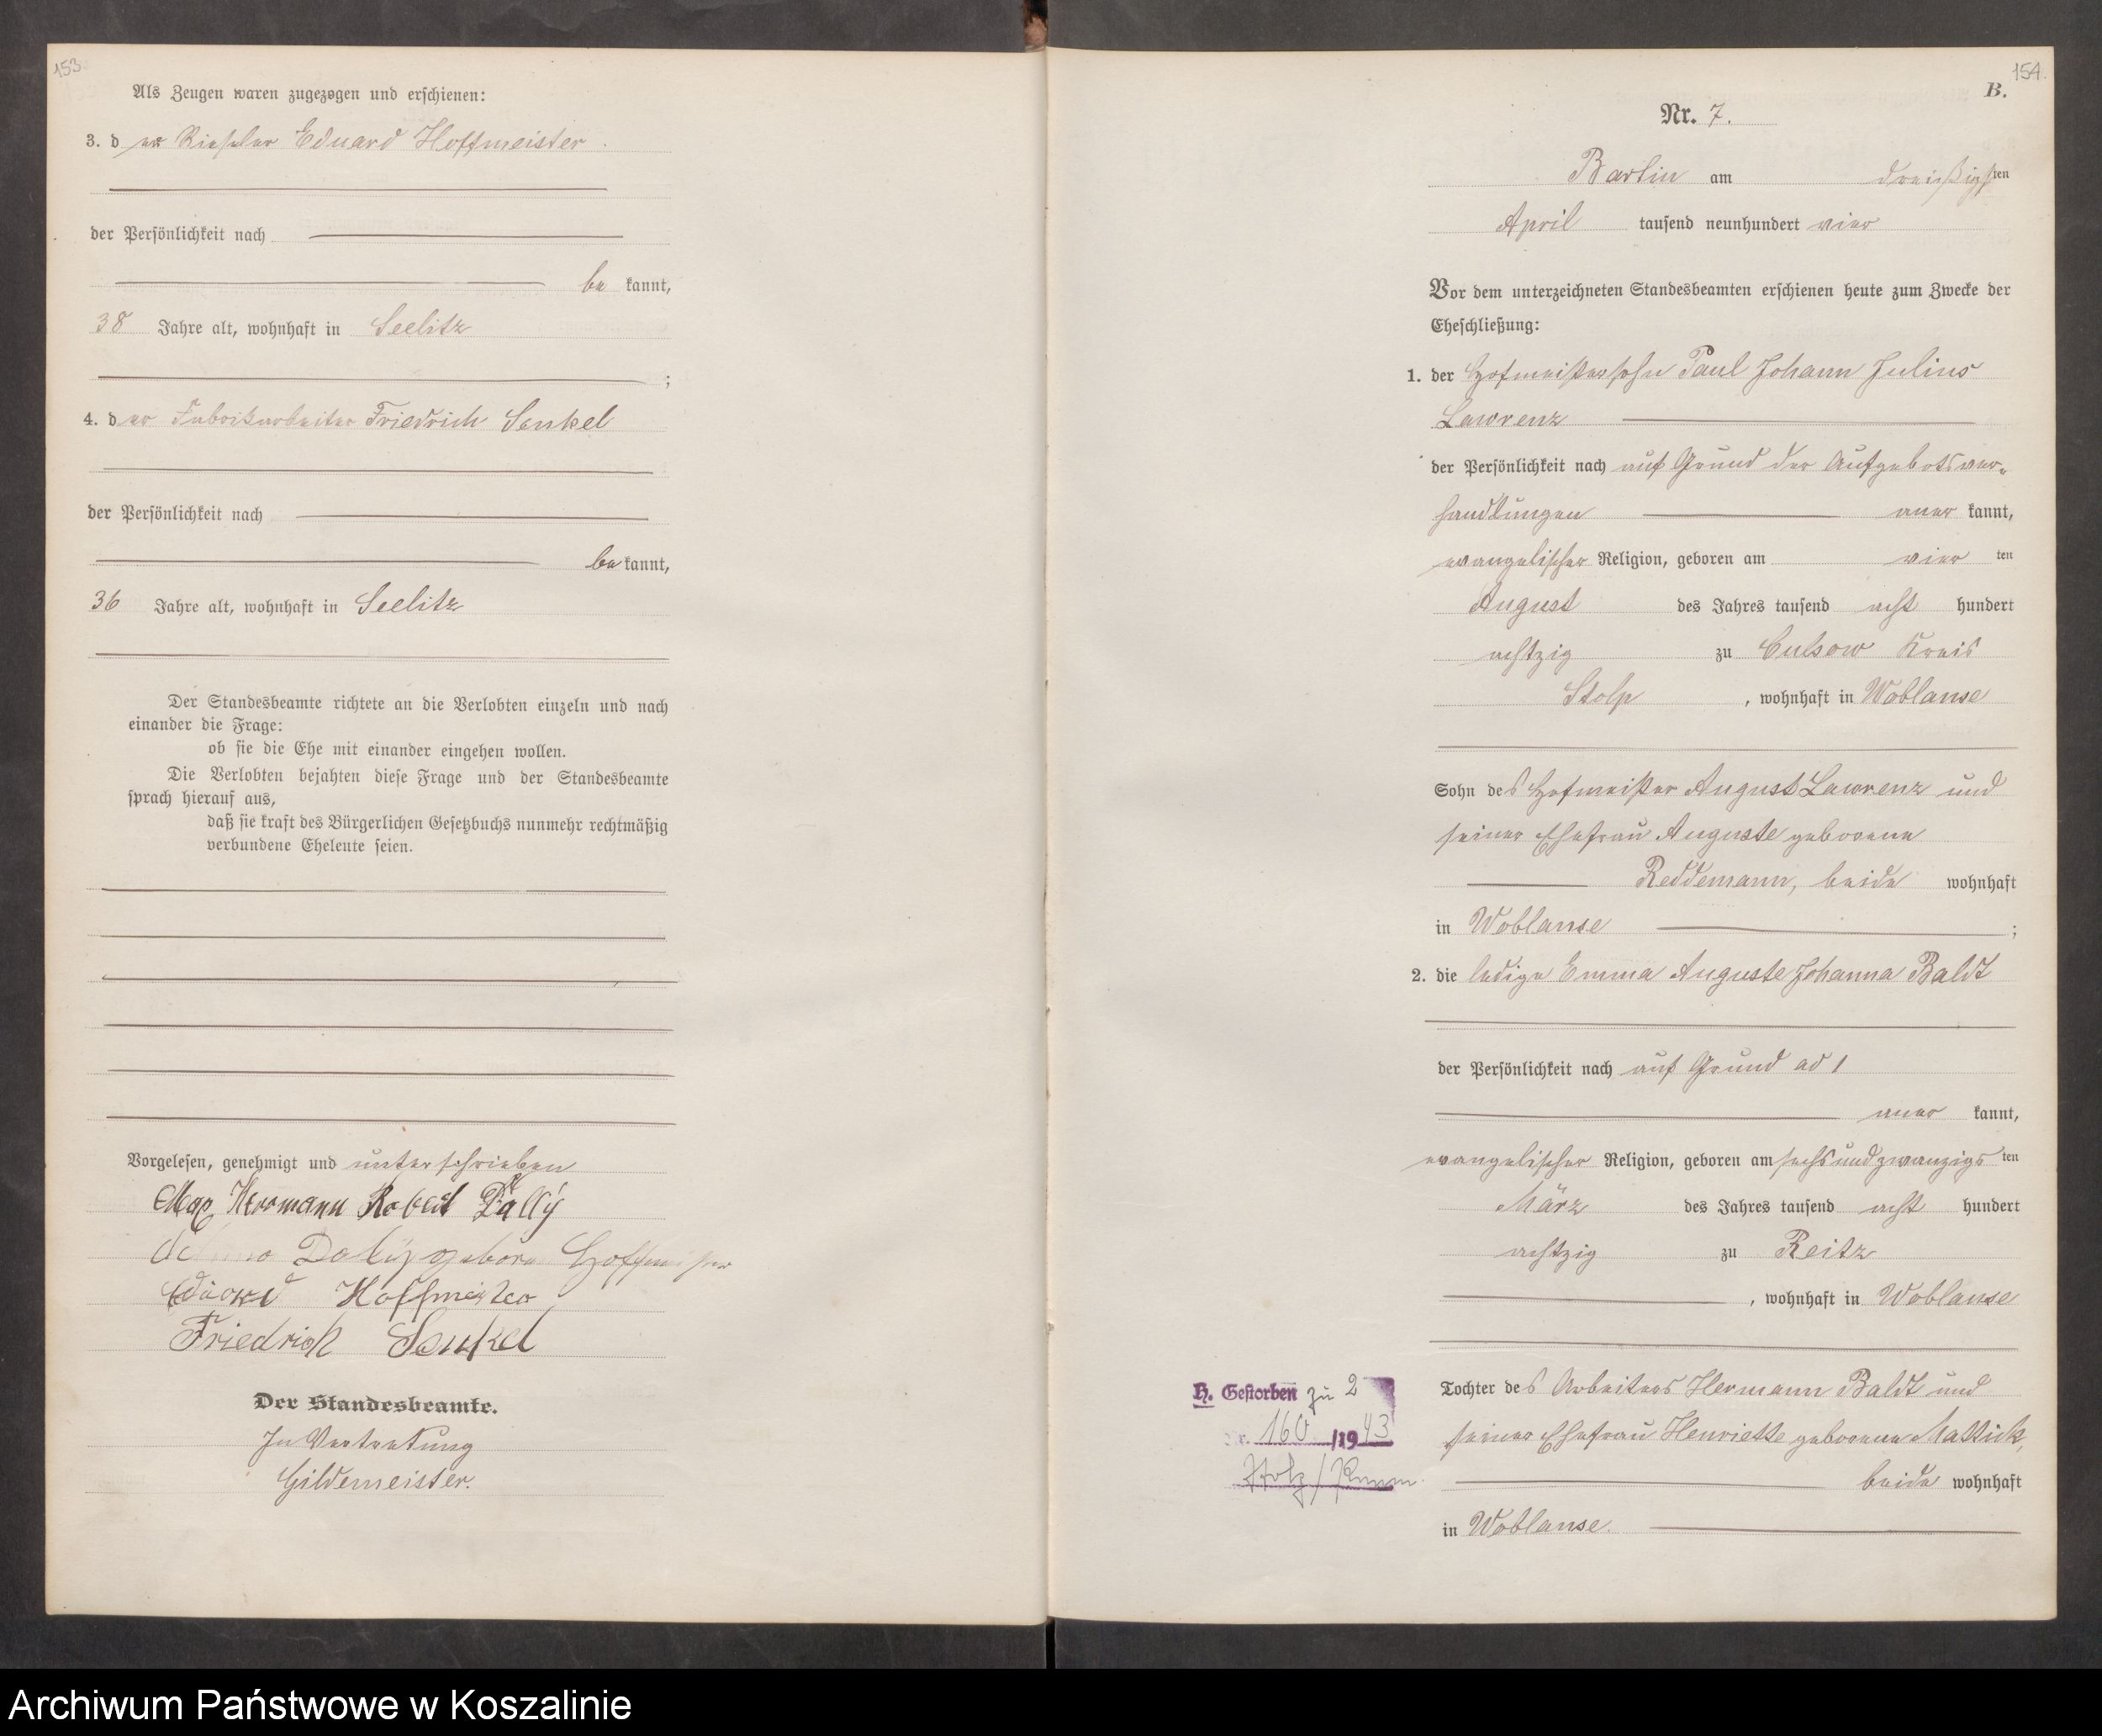 153
Als Zeugen waren zugezogen und erschienen:
3. der Eduard Hoffmeister.
der Persönlichkeit nach
be kannt,
38 Jahre alt, wohnhaft in Seelitz
;
4. der Fabrikarbeiter Friedrich Senkel
der Persönlichkeit nach
be kannt,
36 Jahre alt, wohnhaft in Seelitz
Der Standesbeamte richtete an die Verlobten einzeln und nach
einander die Frage:
ob sie die Ehe mit einander eingehen wollen.
Die Verlobten bejahten diese Frage und der Standesbeamte
sprach hierauf aus,
daß sie kraft des Bürgerlichen Gesetzbuchs nunmehr rechtmäßig
verbundene Eheleute seien.
Vorgelesen, genehmigt und unterschrieben
Max Hermann Robert Dally
Dally gebore Hoffmeister
Eduard Hoffmeister
Friedrich Senkel
Der Standesbeamte.
In Vertretung
Gildemeister.
154.
B.
Nr. 7.
Bartin am dreißigsten
April tausend neunhundert vier
Vor dem unterzeichneten Standesbeamten erschienen heute zum Zwecke der
Eheschließung:
1. der Hofmeistersohn Paul Johann Julius
Lawrenz
der Persönlichkeit nach auf Grund der Aufgebotsver-
handlungen aner kannt,
evangelischer Religion, geboren am vier ten
August des Jahres tausend acht hundert
achtzig zu Culsow Kreis
Stolp, wohnhaft in Woblanse
Sohn des Hofmeister August Lawrenz und
seiner Ehefrau Auguste geborene
Reddemann, beide wohnhaft
in Woblanse ;
2. die ledige Emma Auguste Johanna Baldt
der Persönlichkeit nach auf Grund ad 1
aner kannt,
evangelischer Religion, geboren am sechsundzwanzigsten
März des Jahres tausend acht hundert
achtzig zu Reitz
, wohnhaft in Woblanse
Tochter des Arbeiters Hermann Baldt und
seiner Ehefrau Henriette geborene Mattick,
beide wohnhaft
in Woblanse.
H. Gestorben zu 2
Nr. 160 /1943
Stolp/Pomm.
Archiwum Państwowe w Koszalinie